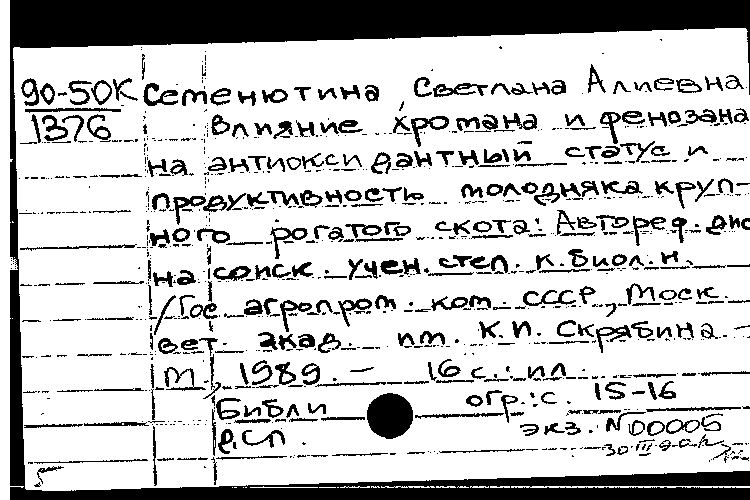 90-50К Семенютина, Светлана Алиевна
1376 Влияние хромана и фенозана
на антиоксидантный статус и
продуктивность молодняка круп-
ного рогатого скота: Автореф. дис
на соиск. учен. степ. к. биол. н.
/Гос. агропром. ком. СССР, Моск.
вет. акад. им. К. И. Скрябина. —
М., 1989. — 16 с.: ил.
Библиогр.: с. 15-16
р.сп. экз. N 00005